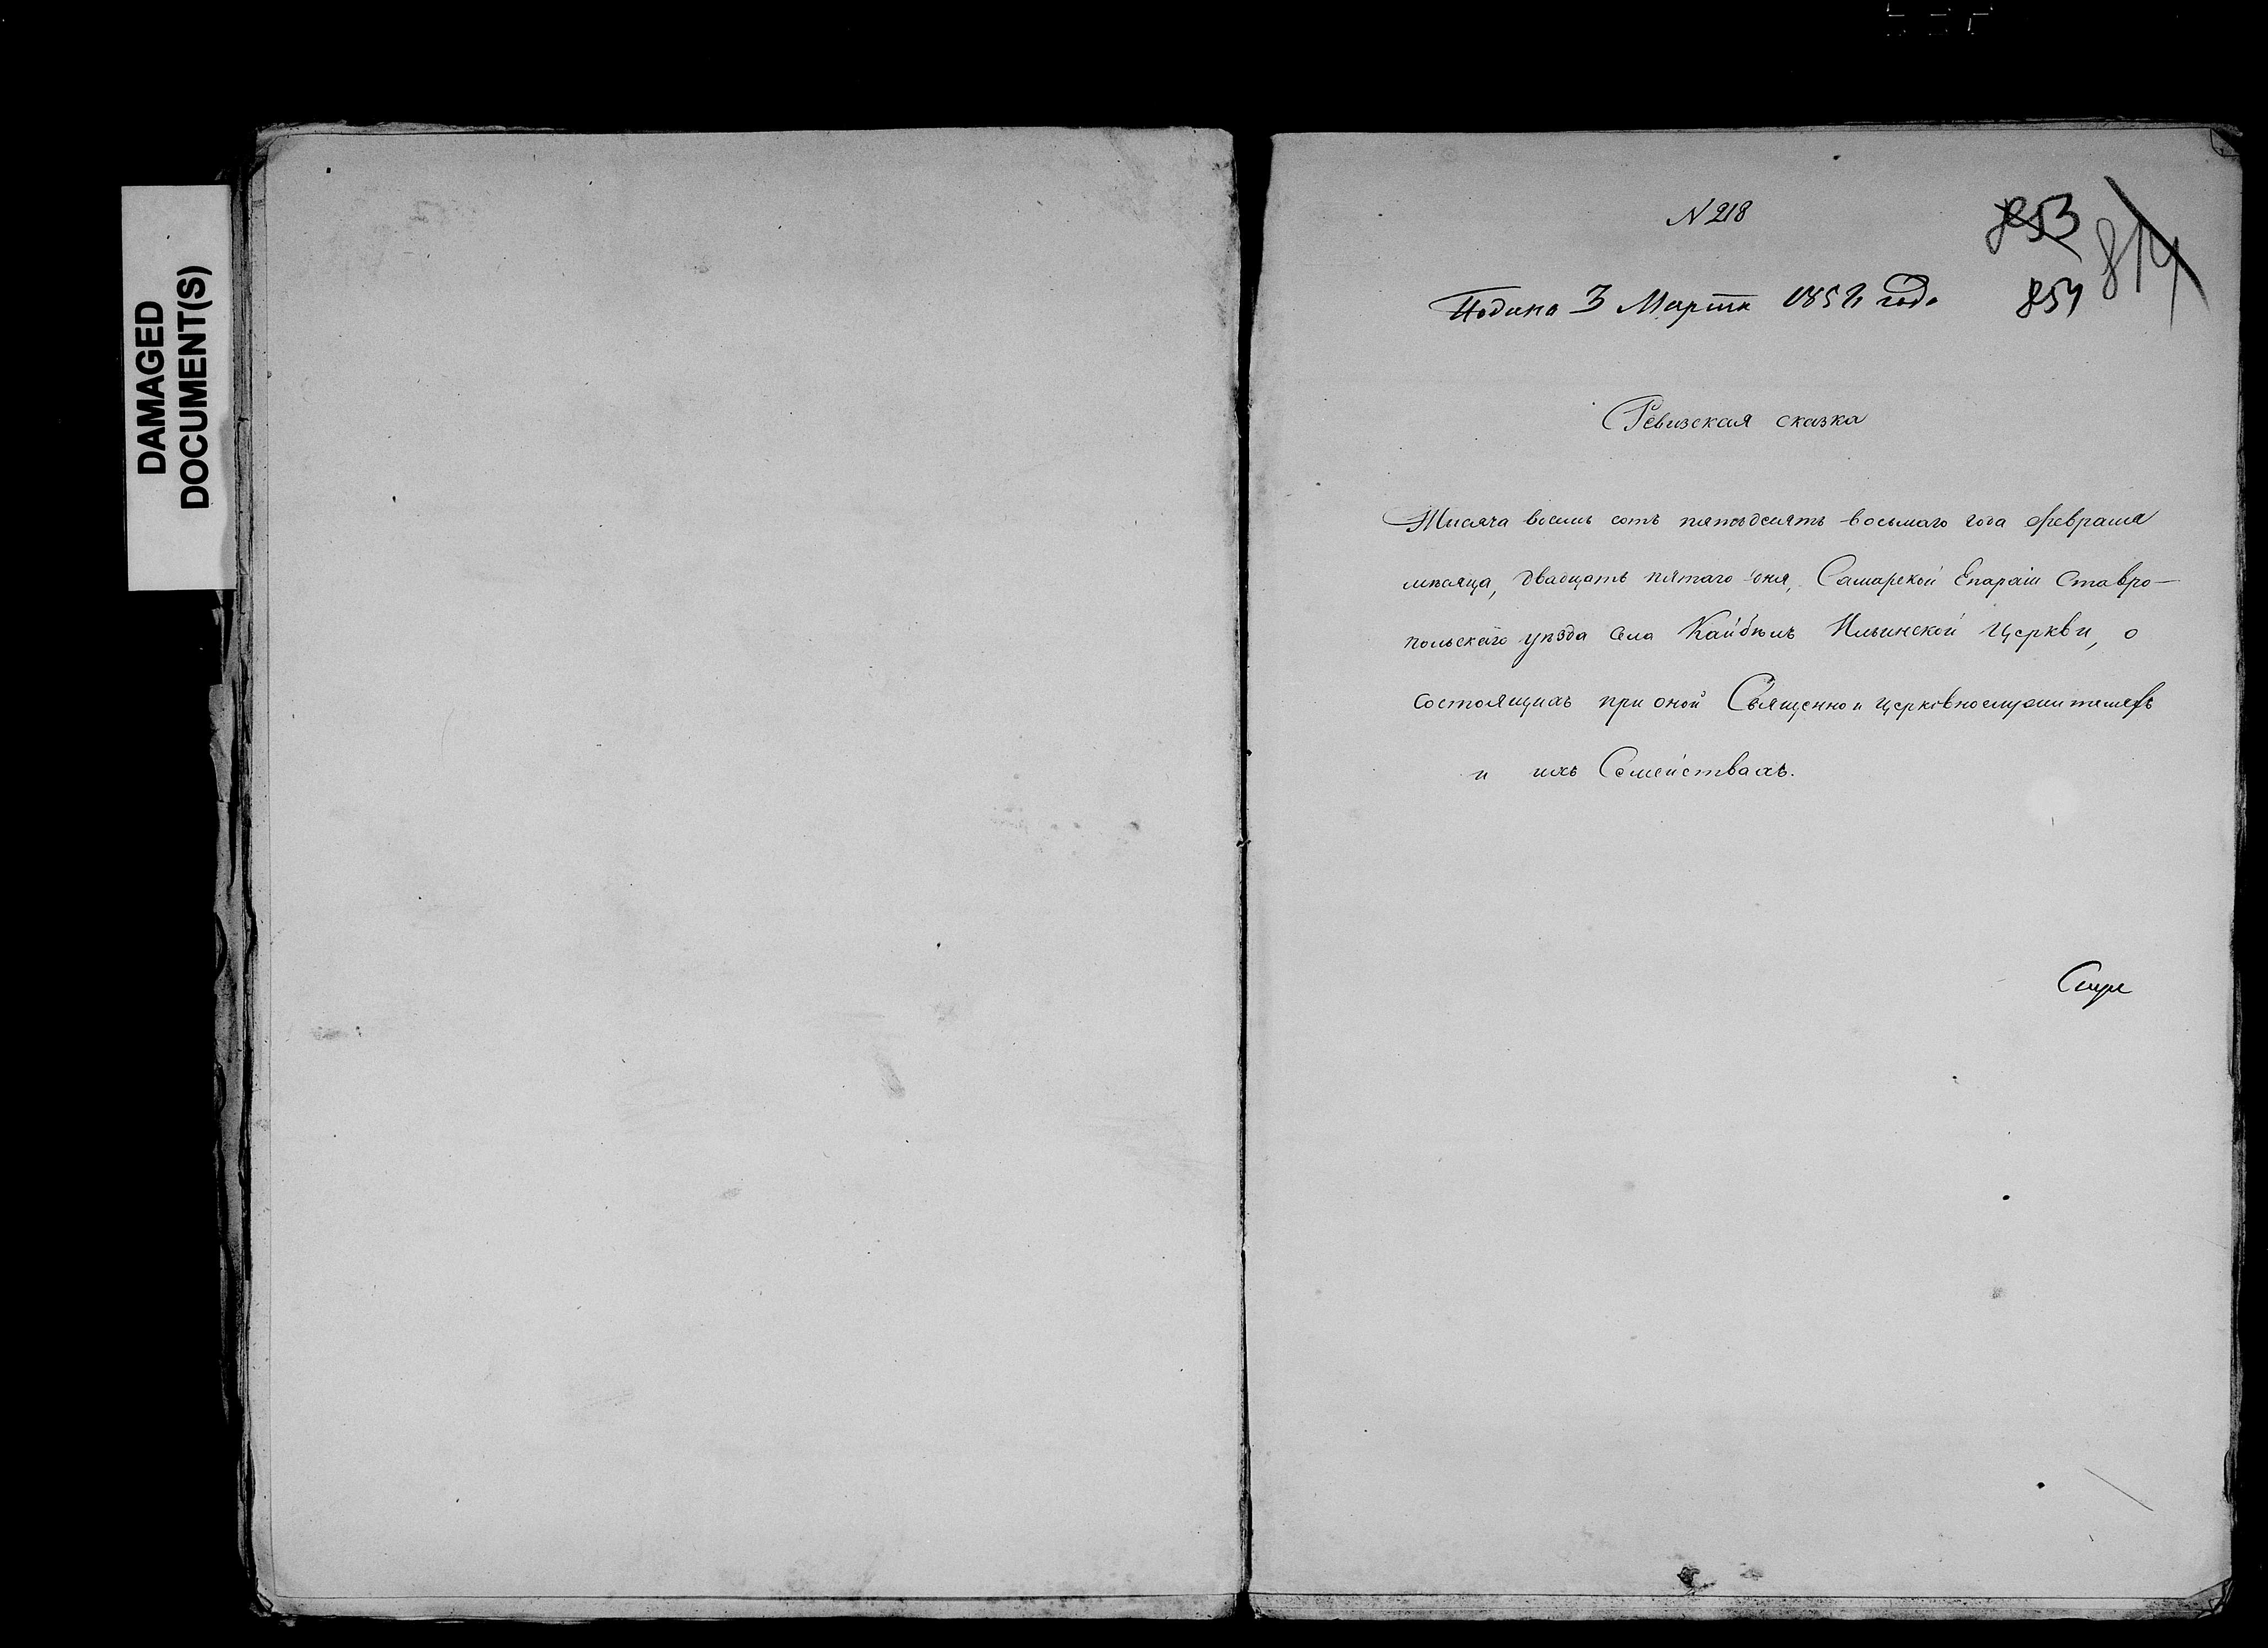 DAMAGED
DOCUMENT(S)
N 218
853
814
Подана 3 Марта 1858 года
854
Ревизская сказка
Тысяча восемь сотъ пятьдесятъ восьмаго года февраля
мѣсяца, двадцать пятаго дня, Самарской Епархіи Ставро-
польскаго уѣзда села Кайбѣлъ Ильинской Церкви, о
состоящихъ при оной Священно и церковнослужителяхъ
и ихъ Семействахъ.